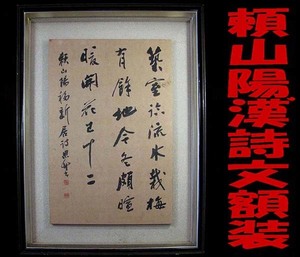 頼山陽漢詩文額装
築室臨流水栽梅
有餘地今冬頗暄
暖開花已十二
頼山陽新居詩